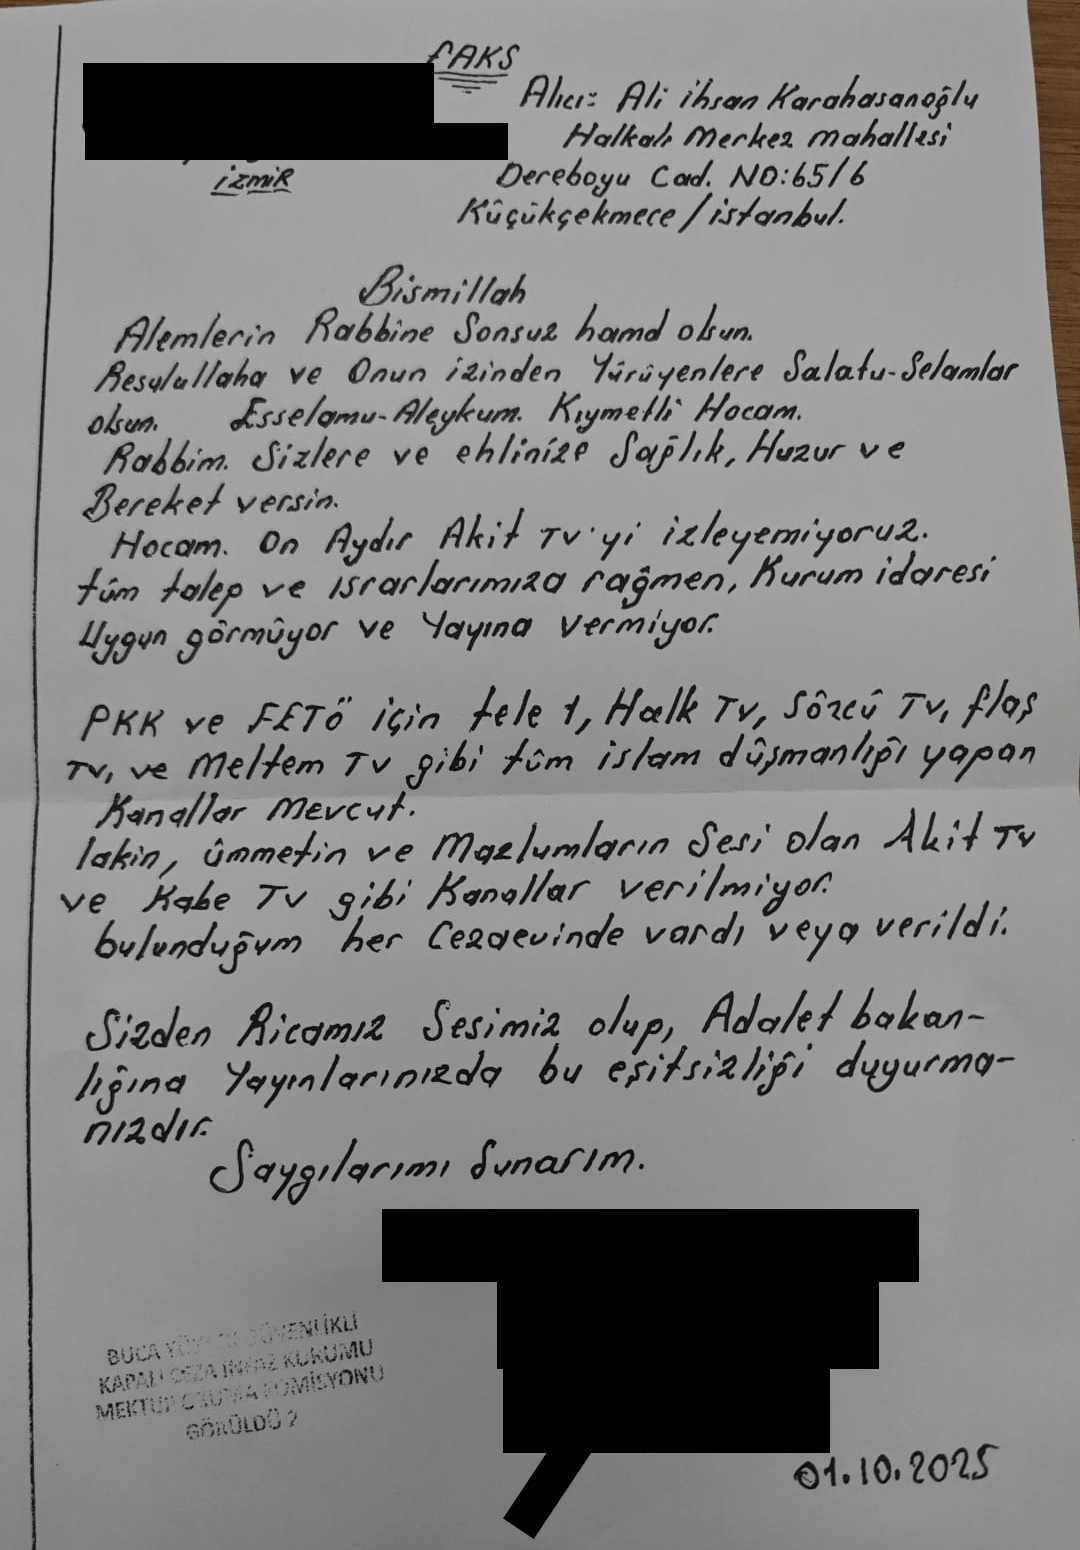 FAKS
Alıcı: Ali ihsan Karahasanoğlu
Halkalı Merkez mahallesi
Dereboyu Cad. NO:65/6
Küçükçekmece/istanbul.
iZMiR
Bismillah
Alemlerin Rabbine Sonsuz hamd olsun.
Resulullaha ve Onun izinden Yürüyenlere Salatu-Selamlar
olsun. Esselamu-Aleykum. Kıymetli Hocam.
Rabbim. Sizlere ve ehlinize Sağlık, Huzur ve
Bereket versin.
Hocam. On Aydır Akit TV'yi izleyemiyoruz.
tüm talep ve ısrarlarımıza rağmen, Kurum idaresi
Uygun görmüyor ve Yayına vermiyor.
PKK ve FETÖ için tele 1, Halk TV, Sözcü TV, flaş
TV, ve Meltem TV gibi tüm islam düşmanlığı yapan
Kanallar Mevcut.
lakin, ümmetin ve Mazlumların Sesi olan Akit TV
ve Kabe TV gibi Kanallar verilmiyor.
bulunduğum her Cezaevinde vardı veya verildi.
Sizden Ricamız Sesimiz olup, Adalet bakan-
lığına Yayınlarınızda bu eşitsizliği duyurma-
nızdır.
Saygılarımı Sunarım.
BUCA YÜKSEK GÜVENLİKLİ
KAPALI CEZA İNFAZ KURUMU
MEKTUP OKUMA KOMİSYONU
GÖRÜLDÜ 2
01.10.2025